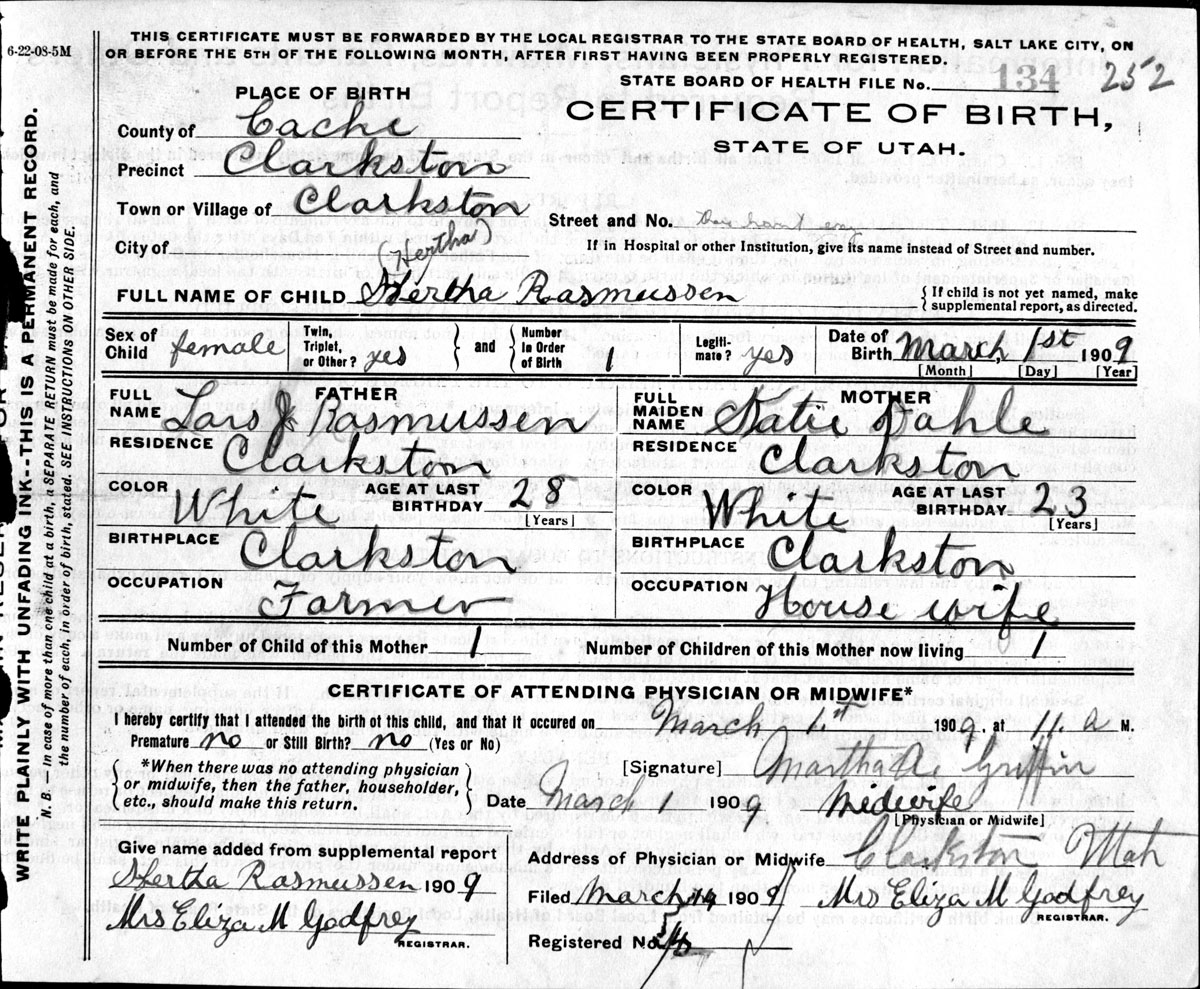 6-22-08-5M
THIS CERTIFICATE MUST BE FORWARDED BY THE LOCAL REGISTRAR TO THE STATE BOARD OF HEALTH, SALT LAKE CITY, ON
OR BEFORE THE 5TH OF THE FOLLOWING MONTH, AFTER FIRST HAVING BEEN PROPERLY REGISTERED.
STATE BOARD OF HEALTH FILE No. 134 252
PLACE OF BIRTH
CERTIFICATE OF BIRTH,
STATE OF UTAH.
County of Cache
Precinct Clarkston
Town or Village of Clarkston
Street and No.
City of
If in Hospital or other Institution, give its name instead of Street and number.
(Hertha)
FULL NAME OF CHILD Hertha Rasmussen
{ If child is not yet named, make
supplemental report, as directed.
Sex of Child female
Twin, Triplet, or Other? yes } and { Number in Order of Birth 1
Legiti-mate? yes
Date of Birth March 1st 1909
[Month] [Day] [Year]
FATHER
FULL NAME Lars J Rasmussen
RESIDENCE Clarkston
COLOR White AGE AT LAST BIRTHDAY 28 [Years]
BIRTHPLACE Clarkston
OCCUPATION Farmer
MOTHER
FULL MAIDEN NAME Katie Dahle
RESIDENCE Clarkston
COLOR White AGE AT LAST BIRTHDAY 23 [Years]
BIRTHPLACE Clarkston
OCCUPATION House wife
Number of Child of this Mother 1 Number of Children of this Mother now living 1
CERTIFICATE OF ATTENDING PHYSICIAN OR MIDWIFE*
I hereby certify that I attended the birth of this child, and that it occured on March 1st 1909, at 11. a M.
Premature no or Still Birth? no (Yes or No)
{ *When there was no attending physician
or midwife, then the father, householder,
etc., should make this return. }
[Signature] Martha A. Griffin
Date March 1 1909 Midwife
[Physician or Midwife]
Give name added from supplemental report
Hertha Rasmussen 1909
Mrs Eliza M Godfrey
REGISTRAR.
Address of Physician or Midwife Clarkston Utah
Filed March 1909 Mrs Eliza M Godfrey
REGISTRAR.
Registered No.
WRITE PLAINLY WITH UNFADING INK--THIS IS A PERMANENT RECORD.
N. B. In case of more than one child at a birth, a SEPARATE RETURN must be made for each, and
the number of each, in order of birth, stated. SEE INSTRUCTIONS ON OTHER SIDE.